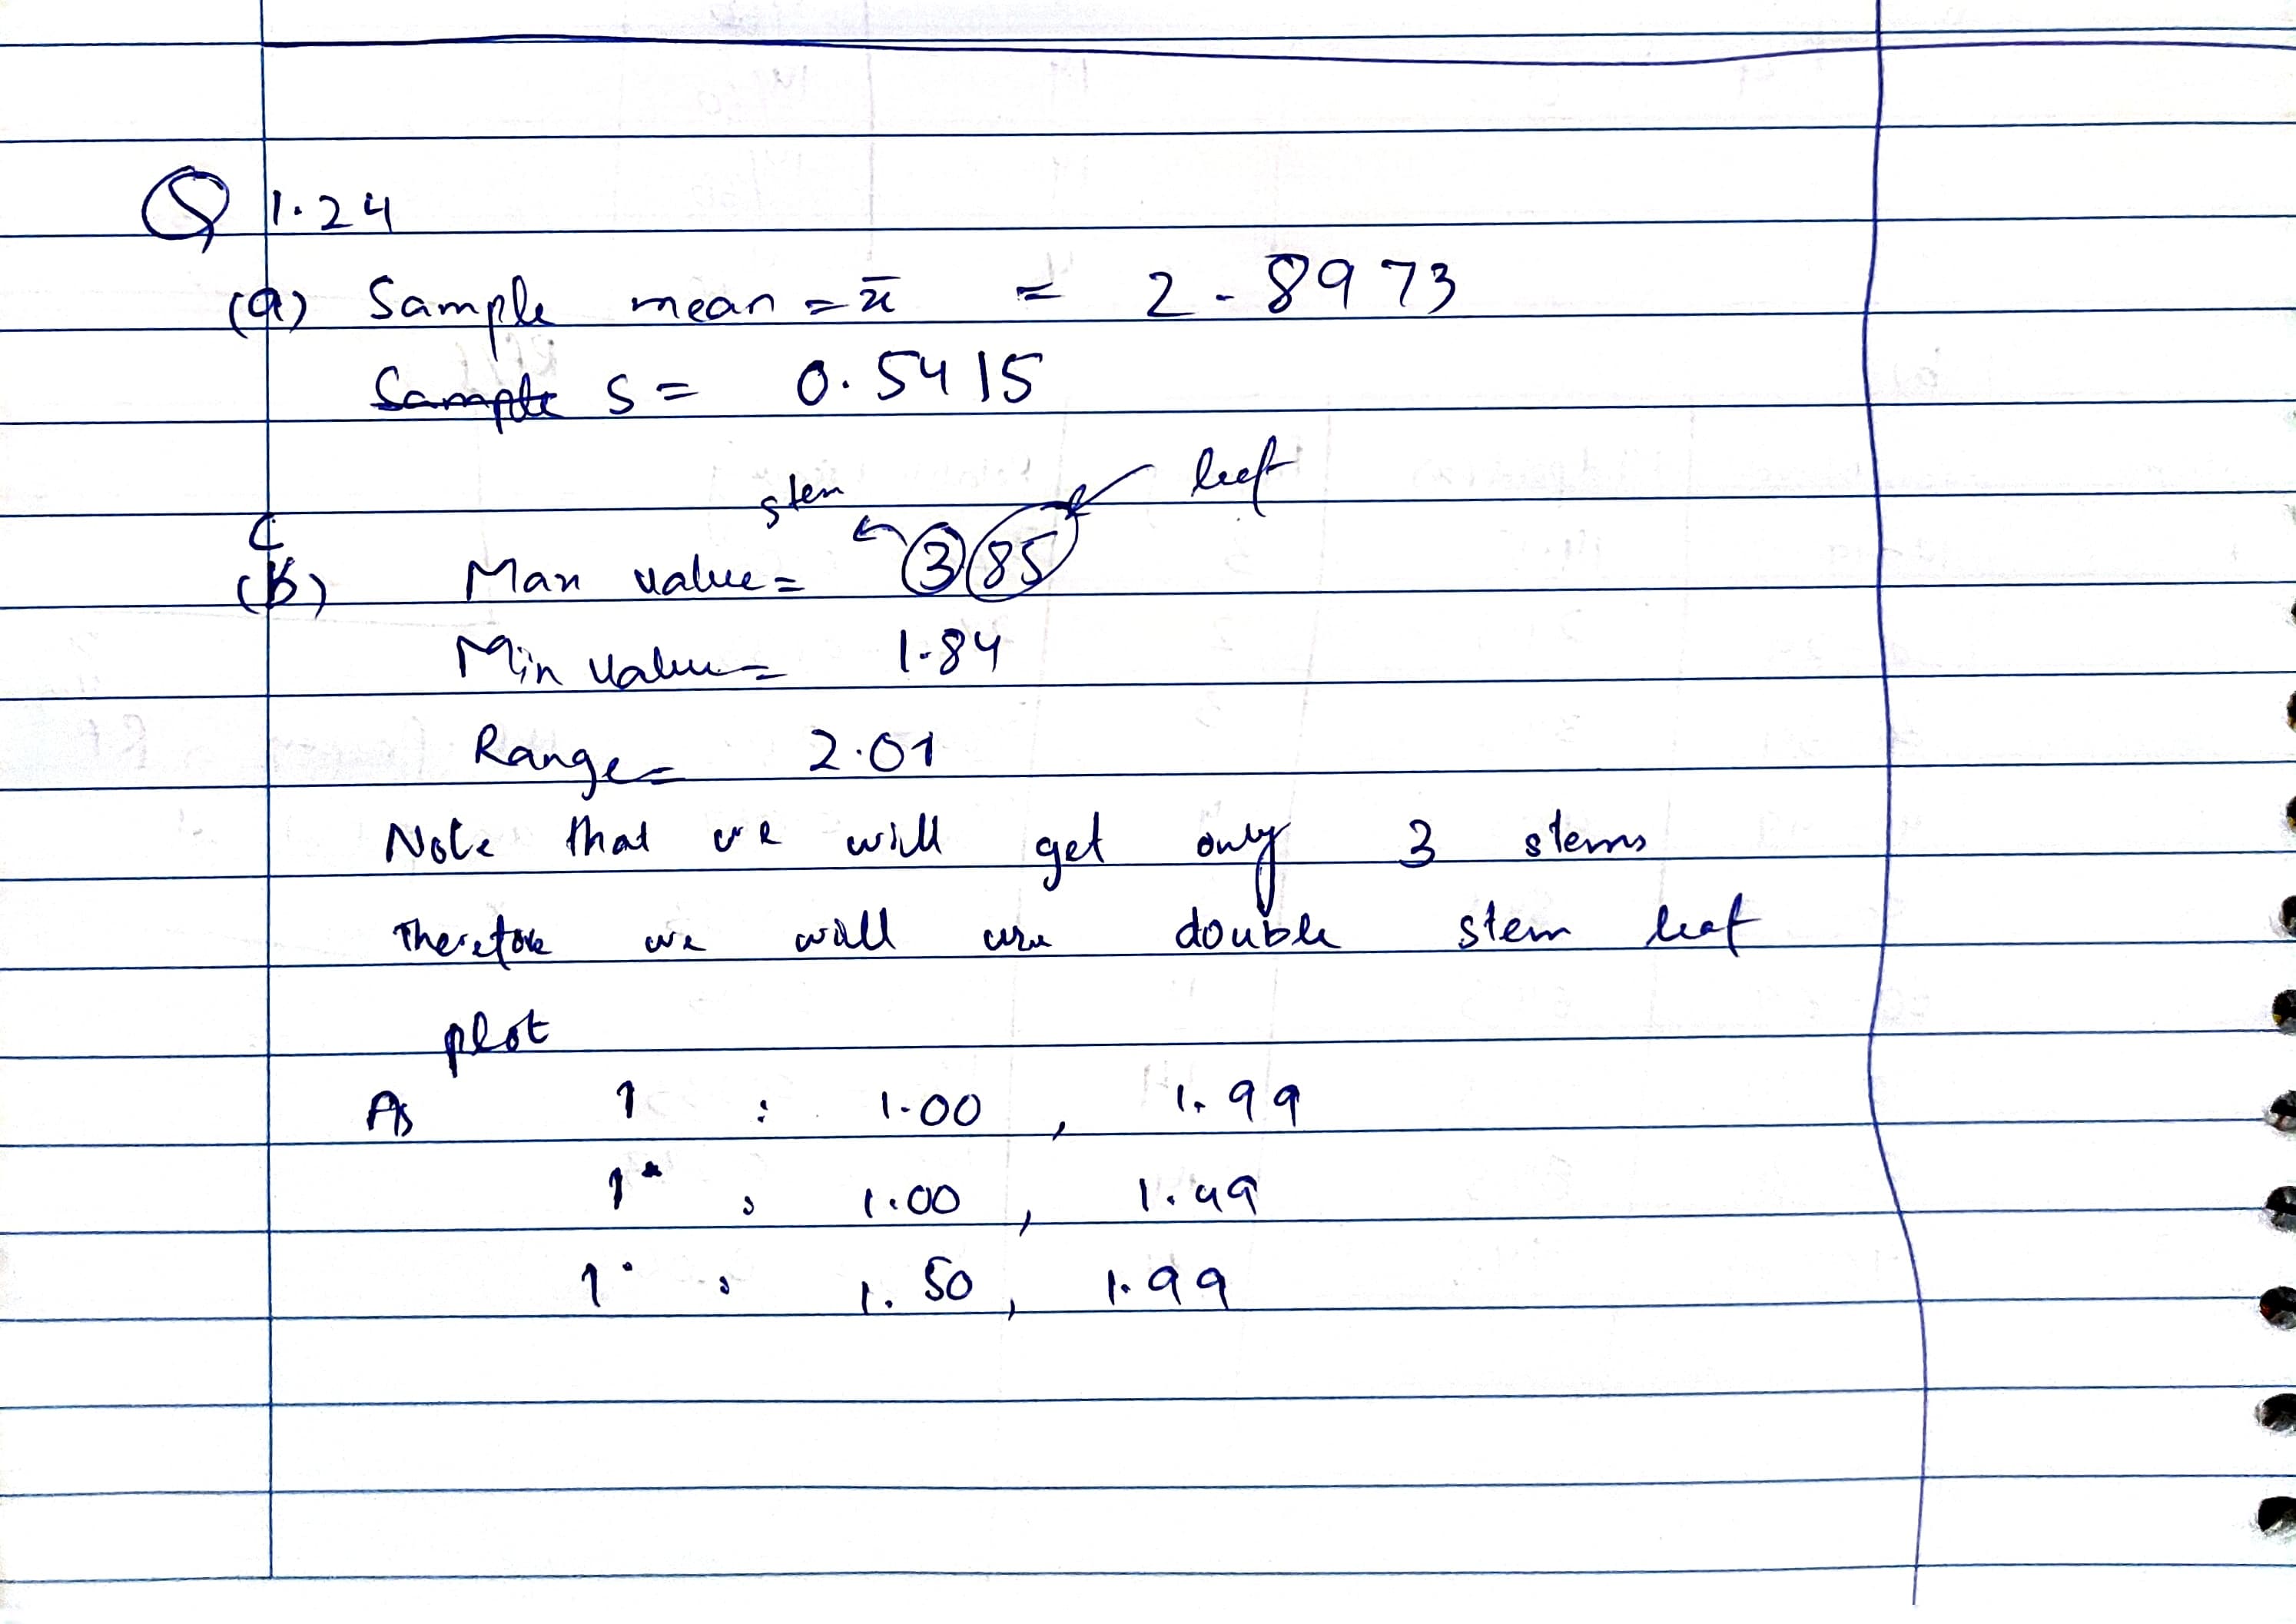 Q 1.24
(a) Sample mean = x̄ = 2.8973
Sample s = 0.5415
stem leef
C
(b) Max value = 3 85
Min value = 1.84
Range = 2.01
Note that we will get only 3 stems
Therefore we will use double stem leaf
plot
As 1 : 1.00 , 1.99
1* : 1.00 , 1.49
1· : 1.50 , 1.99